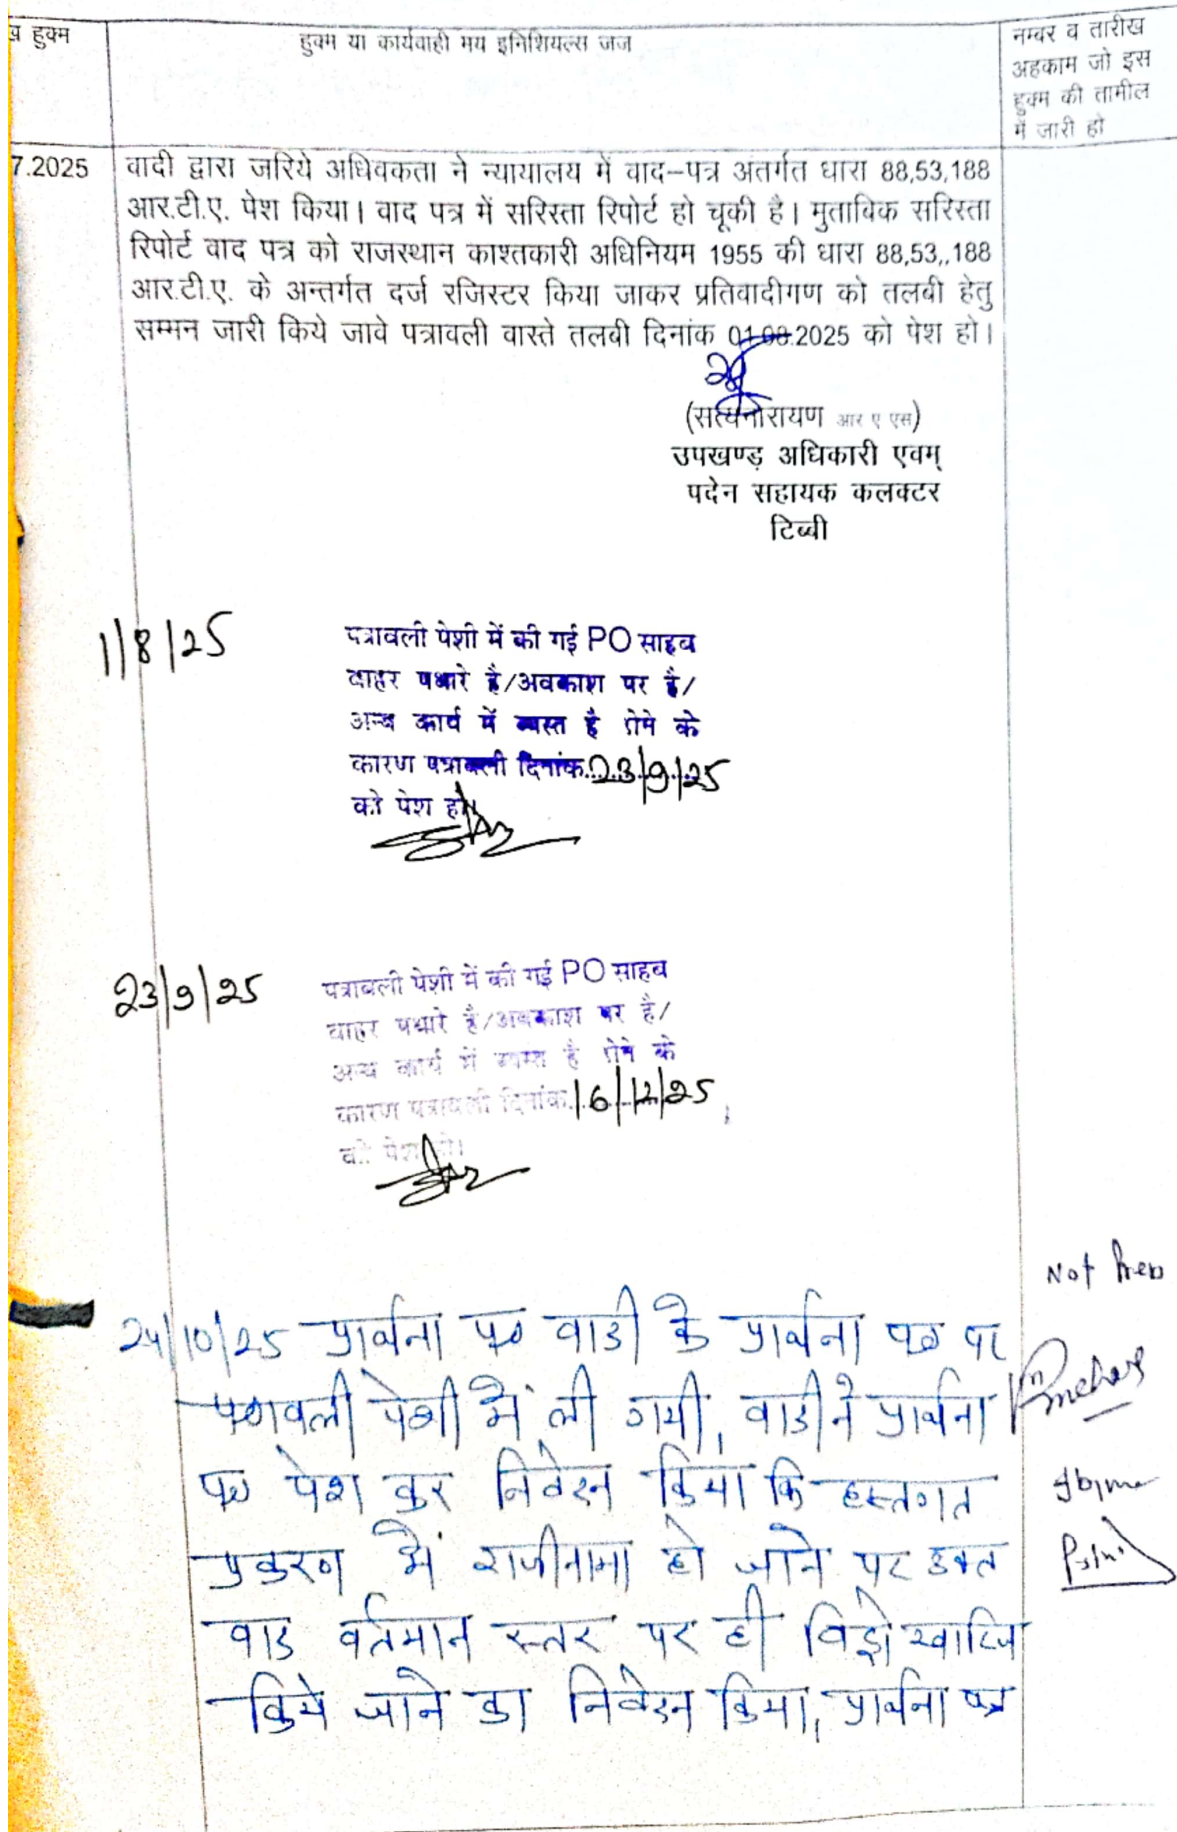 हुक्म
हुक्म या कार्यवाही मय इनिशियल्स जज
नम्बर व तारीख
अहकाम जो इस
हुक्म की तामील
में जारी हो
7.2025
वादी द्वारा जरिये अधिवकता ने न्यायालय में वाद-पत्र अंतर्गत धारा 88,53,188
आर.टी.ए. पेश किया। वाद पत्र में सरिस्ता रिपोर्ट हो चूकी है। मुताविक सरिस्ता
रिपोर्ट वाद पत्र को राजस्थान काश्तकारी अधिनियम 1955 की धारा 88,53,,188
आर.टी.ए. के अन्तर्गत दर्ज रजिस्टर किया जाकर प्रतिवादीगण को तलबी हेतु
सम्मन जारी किये जावे पत्रावली वास्ते तलबी दिनांक 01.08.2025 को पेश हो।
(सत्यनारायण आर ए एस)
उपखण्ड़ अधिकारी एवम्
पदेन सहायक कलक्टर
टिब्बी
1/8/25
पत्रावली पेशी में की गई PO साहब
बाहर पधारे है/अवकाश पर है/
अन्य कार्य में व्यस्त है होने के
कारण पत्रावली दिनांक 23/9/25
को पेश हो।
23/9/25
पत्रावली पेशी में की गई PO साहब
बाहर पधारे है/अवकाश पर है/
अन्य कार्य में व्यस्त है होने के
कारण पत्रावली दिनांक 16/12/25
को पेश हो।
Not Pres
24/10/25 प्रार्थना पत्र वादी के प्रार्थना पत्र पर
पत्रावली पेशी में ली गयी, वादी ने प्रार्थना
पत्र पेश कर निवेदन किया कि हस्तगत
प्रकरण में राजीनामा हो जाने पर उक्त
वाद वर्तमान स्तर पर ही विड्रो खारिज
किये जाने का निवेदन किया, प्रार्थना पत्र